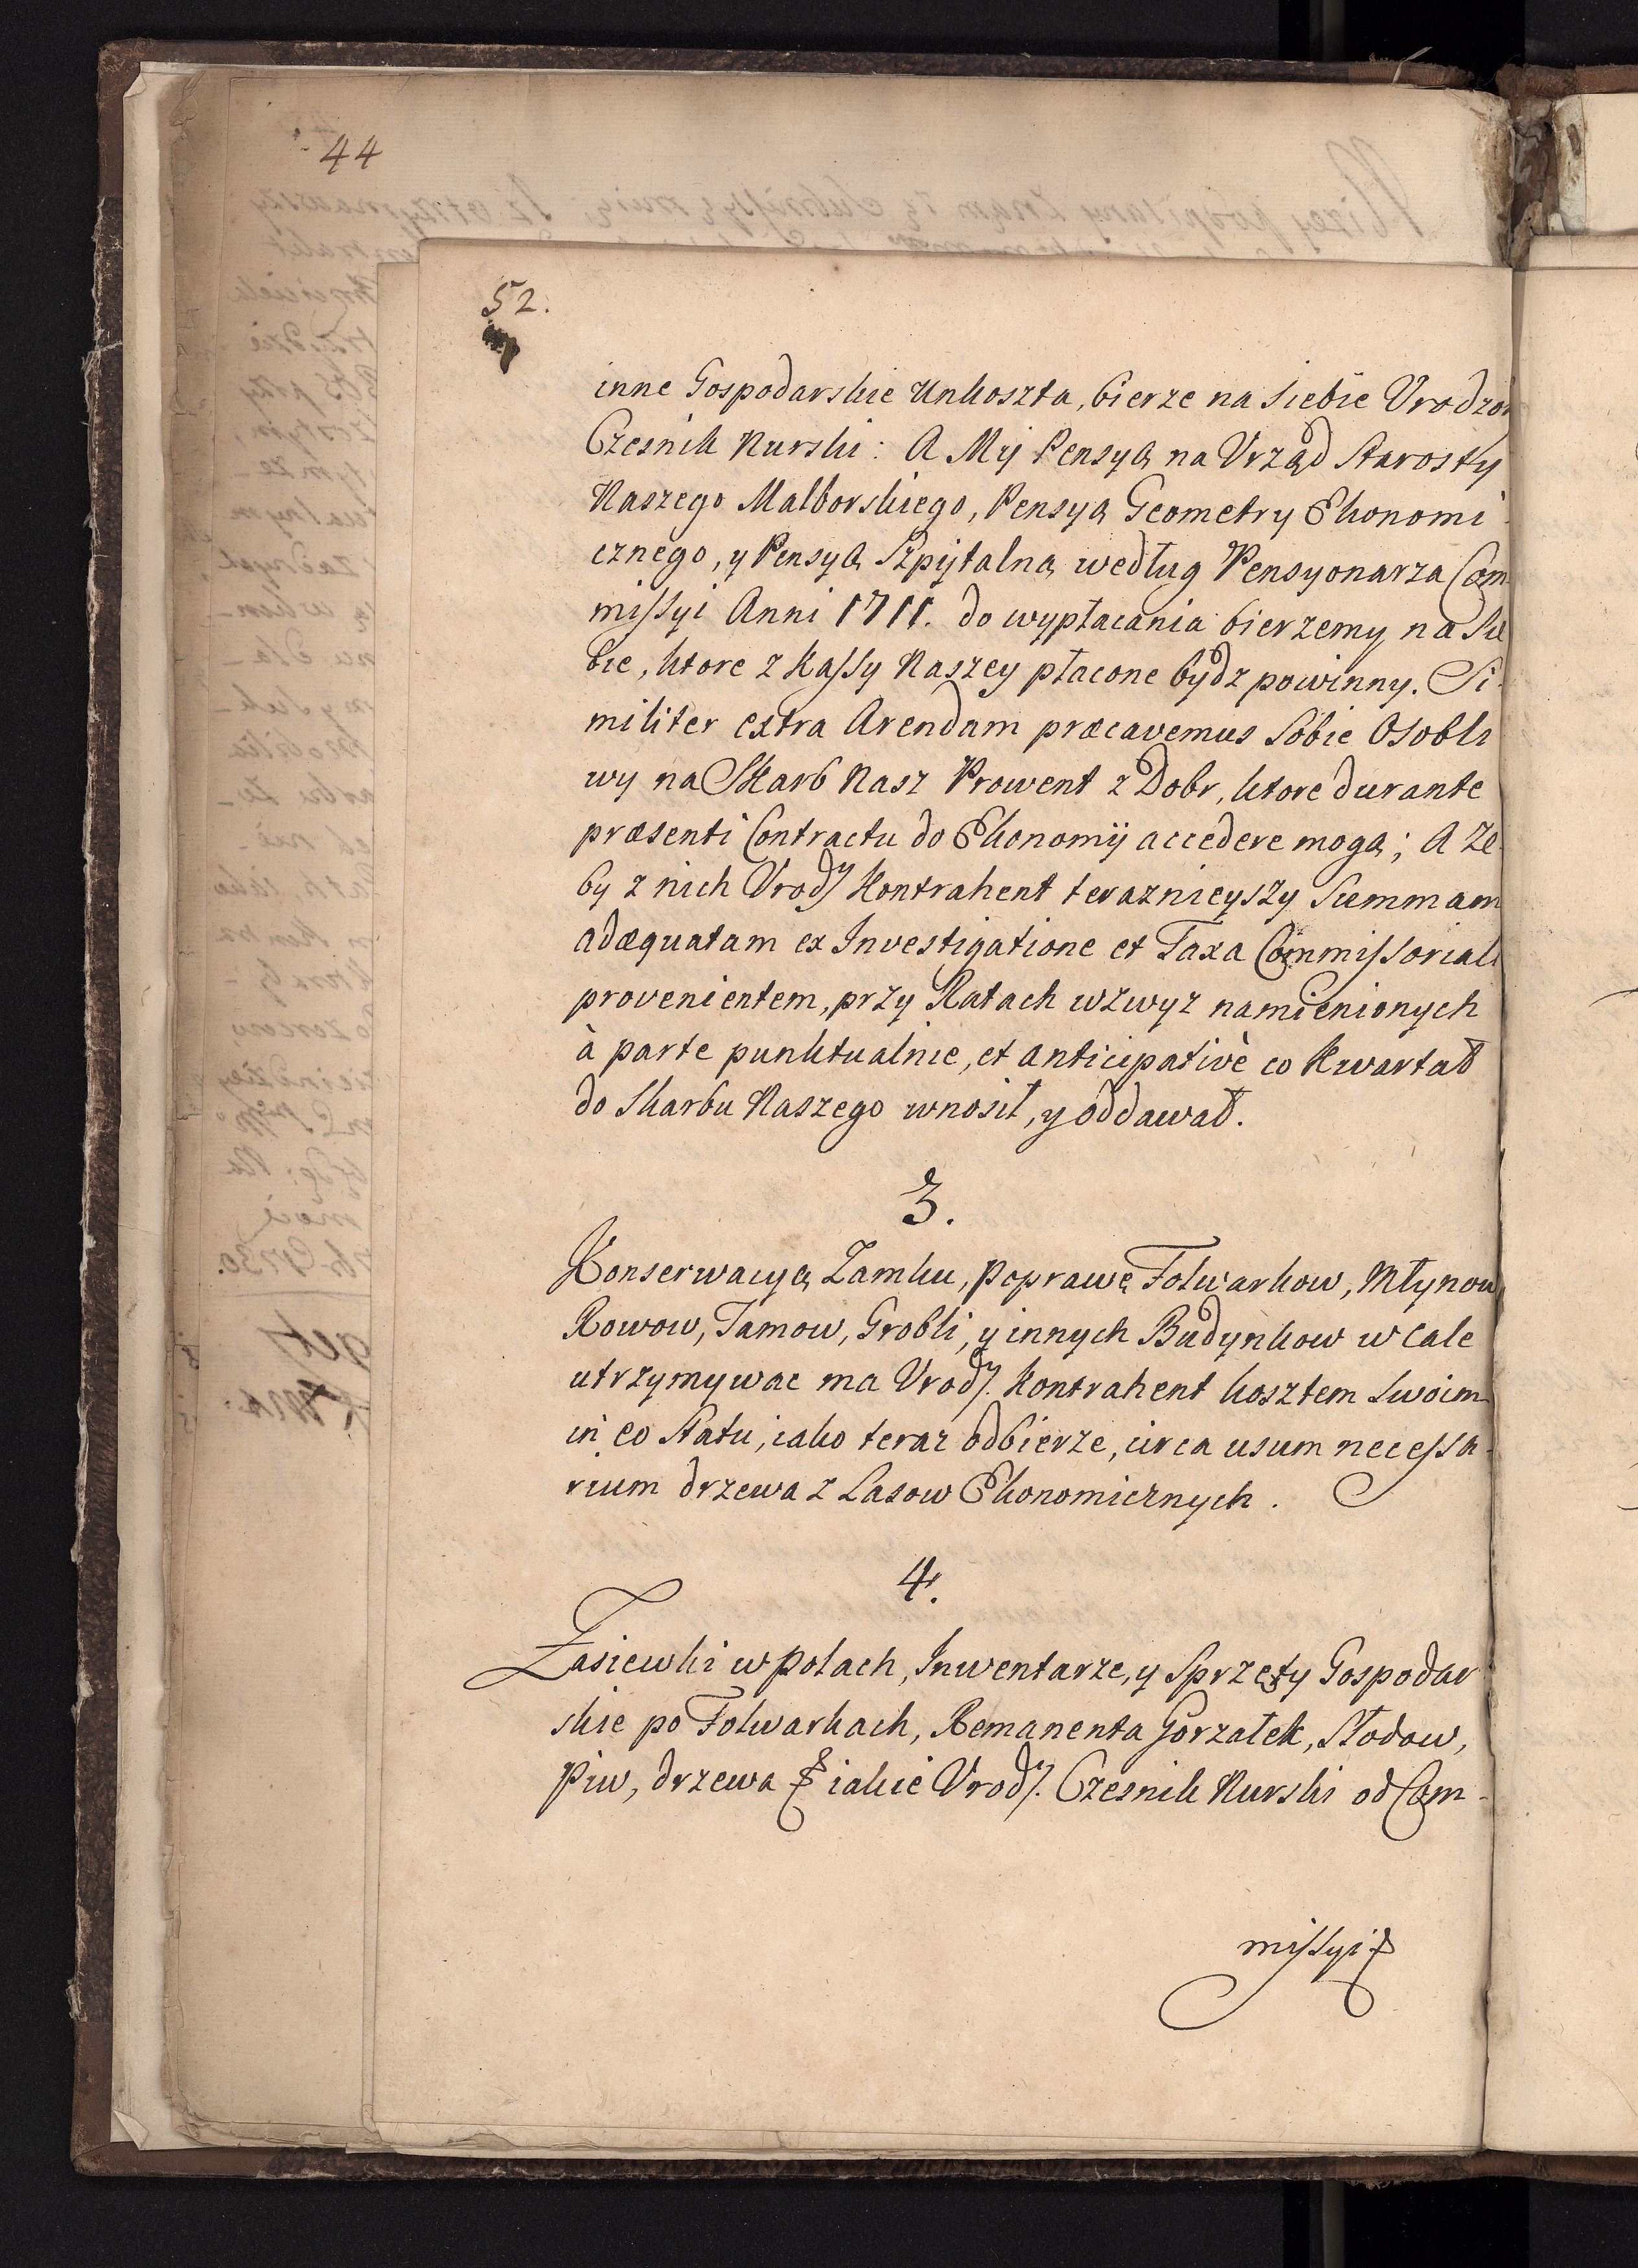 44
52.
inne Gospodarskie Unkoszta, bierze na siebie Vrodzon
Czesnik Nurski: A My Pensyą na Vrząd Starosty
Naszego Malborskiego, Pensyą Geometry Ekonomi
cznego, y Pensyą Szpitalną według Pensyonarza Com
missyi Anni 1711. do wypłacania bierzemy na Sie
bie, ktore z Kassy Naszey płacone bydz powinny. Si
militer extra Arendam præcavemus Sobie Osobli
wy na Skarb Nasz Prowent z Dobr, ktore durante
præsenti Contractu do Ekonomij accedere mogą; A Ze
by z nich Vrodz Kontrahent teraznieyszy Summam
adæquatam ex Investigatione et Taxa Commissoriali
provenientem, przy Ratach wzwyz namienionych
à parte punktualnie, et anticipativè co Kwartał
do Skarbu Naszego wnosił, y oddawał.
3.
Konserwacyą Zamku, poprawę Folwarkow, Młynow
Rowow, Tamow, Grobli, y innych Budynkow w cale
utrzymywac ma Vrodz. Kontrahent kosztem Swoim
in eo Statu, iako teraz odbierze, circa usum necessa-
rium drzewa z Lasow Ekonomicznych.
4.
Zasiewki w polach, Inwentarze, y Sprzęty Gospodar
skie po Folwarkach, Remanenta Gorzałek, Słodow,
Piw, drzewa iakie Vrodz. Czesnik Nurski od Com-
missyi